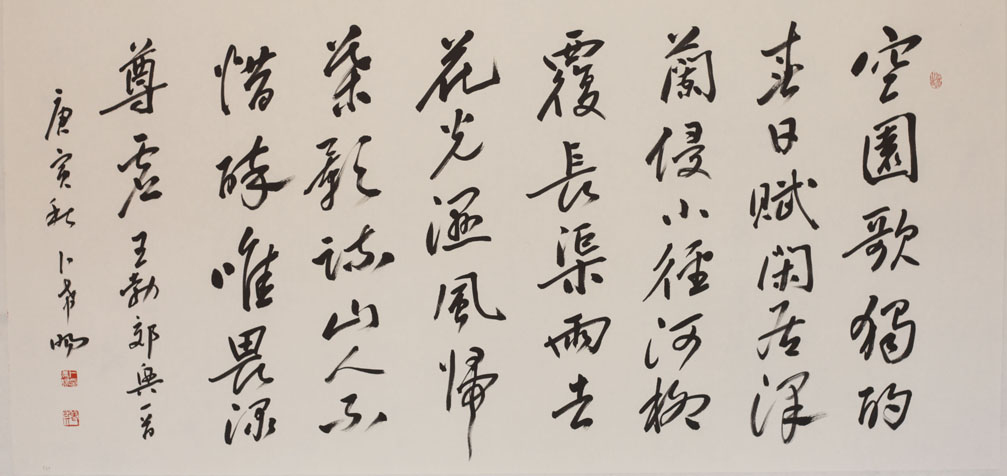 空園歌獨酌
春日賦閑居澤
蘭侵小徑河柳
覆長渠雨去
花光濕風帰
葉影疏山人不
惜醉唯畏渌
尊虛 王勃郊興一首
庚寅秋 卜希旸